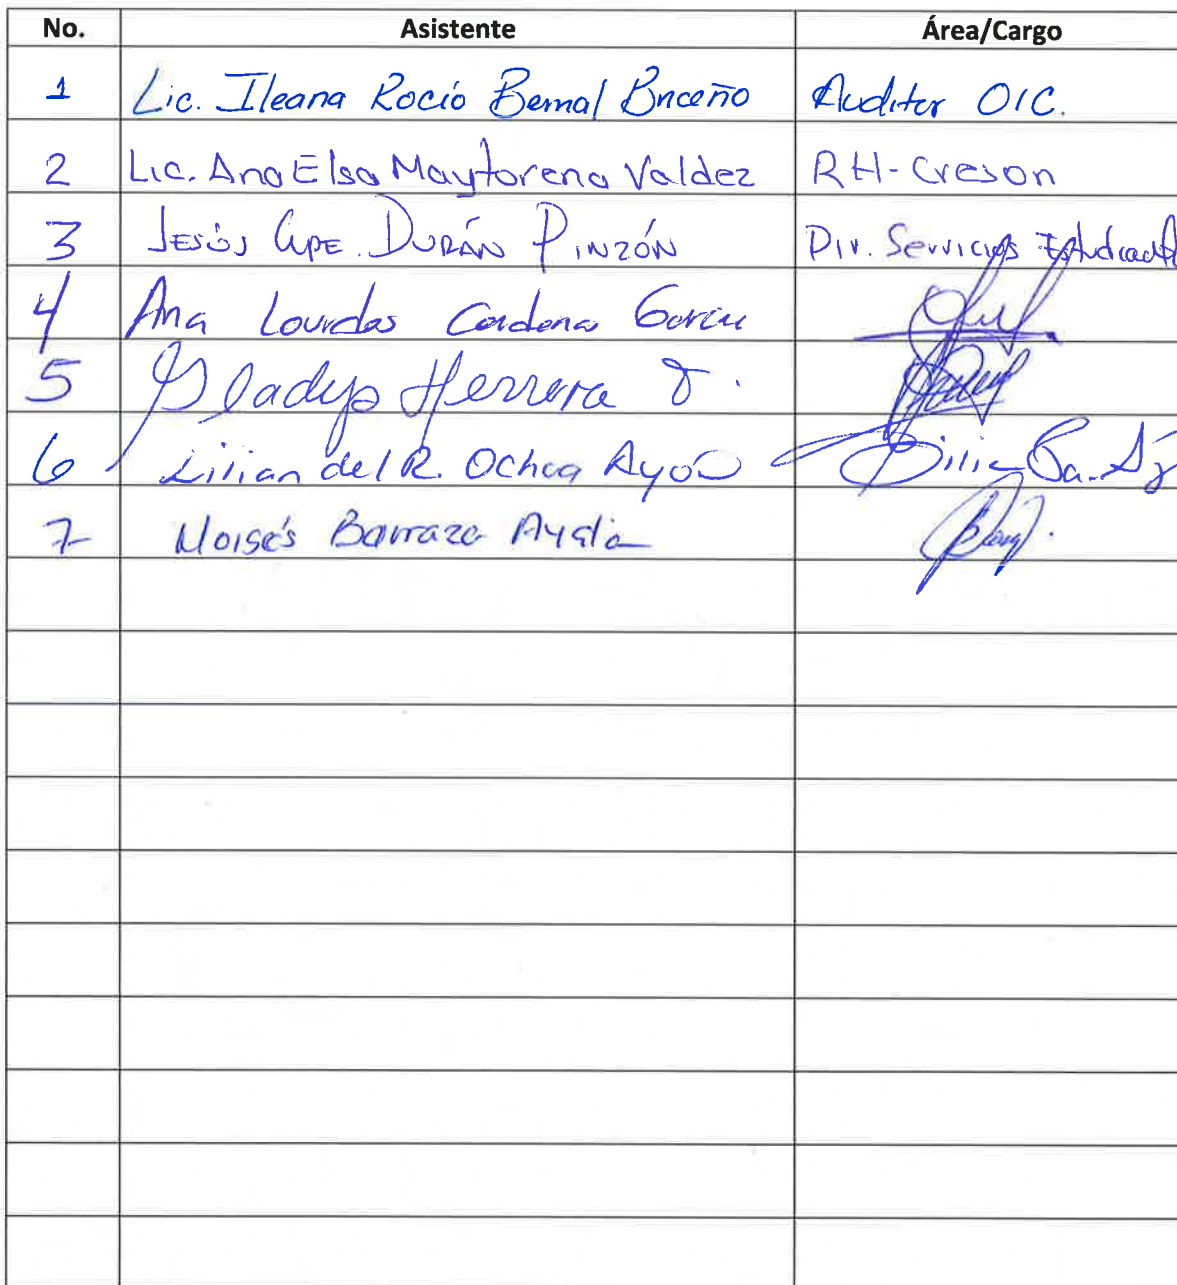 No. Asistente Área/Cargo
1 Lic. Ileana Rocío Bernal Briceño Auditor OIC.
2 Lic. Ana Elsa Maytorena Valdez RH-Creson
3 Jesús Gpe. Durán Pinzón Dir. Servicios
4 Ana Lourdes Cardenas Garcia
5 Gladys Herrera
6 Lilian del R. Ochoa Ayón
7 Moisés Barraza Ayala